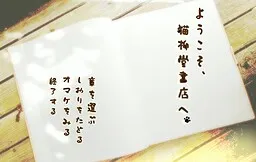 ようこそ、
猫柳堂書店へ
章を選ぶ
しおりをたどる
オマケをみる
終了する